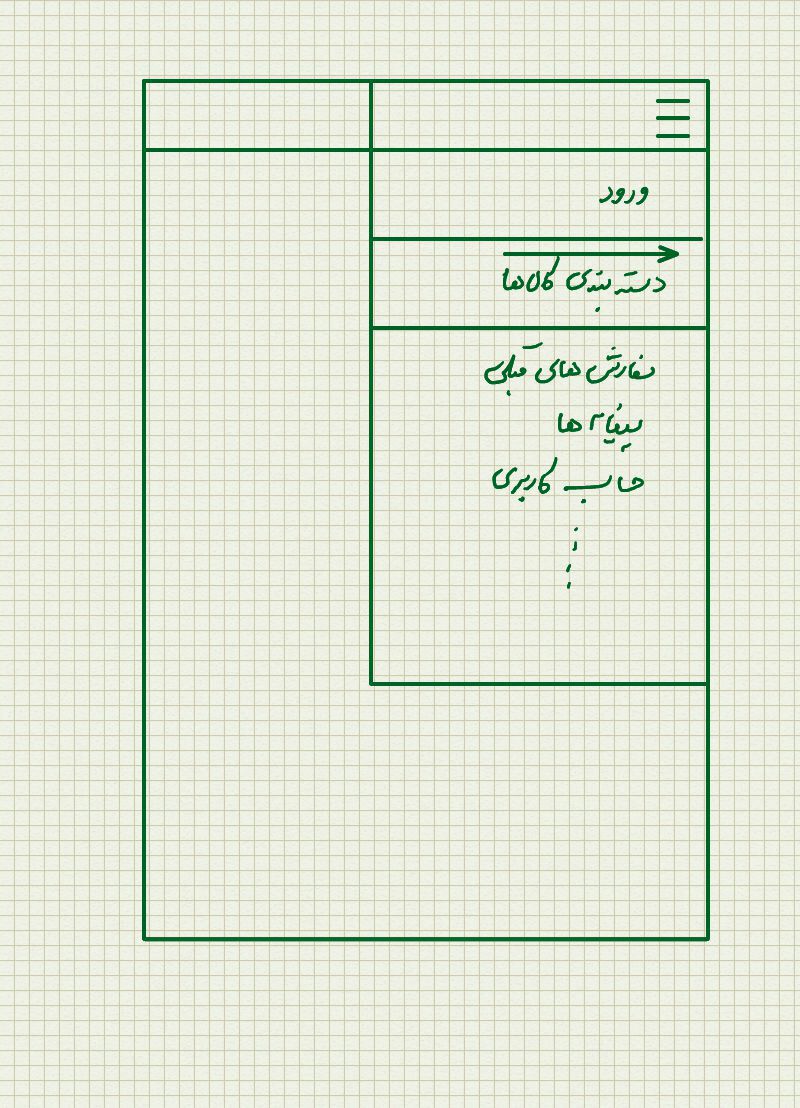 ورود
دسته بندی کالاها
سفارش های قبلی
پیغام ها
حساب کاربری